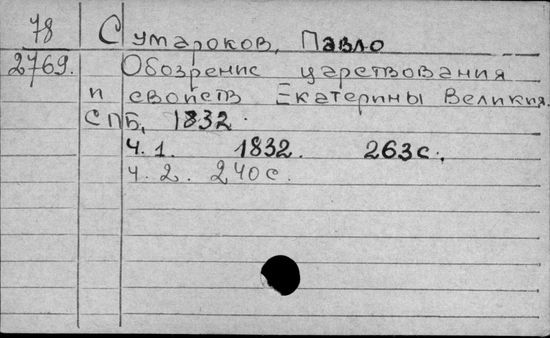 78 Сумароков, Павло
2769. Обозрение царствования
и свойств Екатерины Великия.
СПБ, 1832.
ч. 1. 1832. 263с.
ч. 2. 240с.